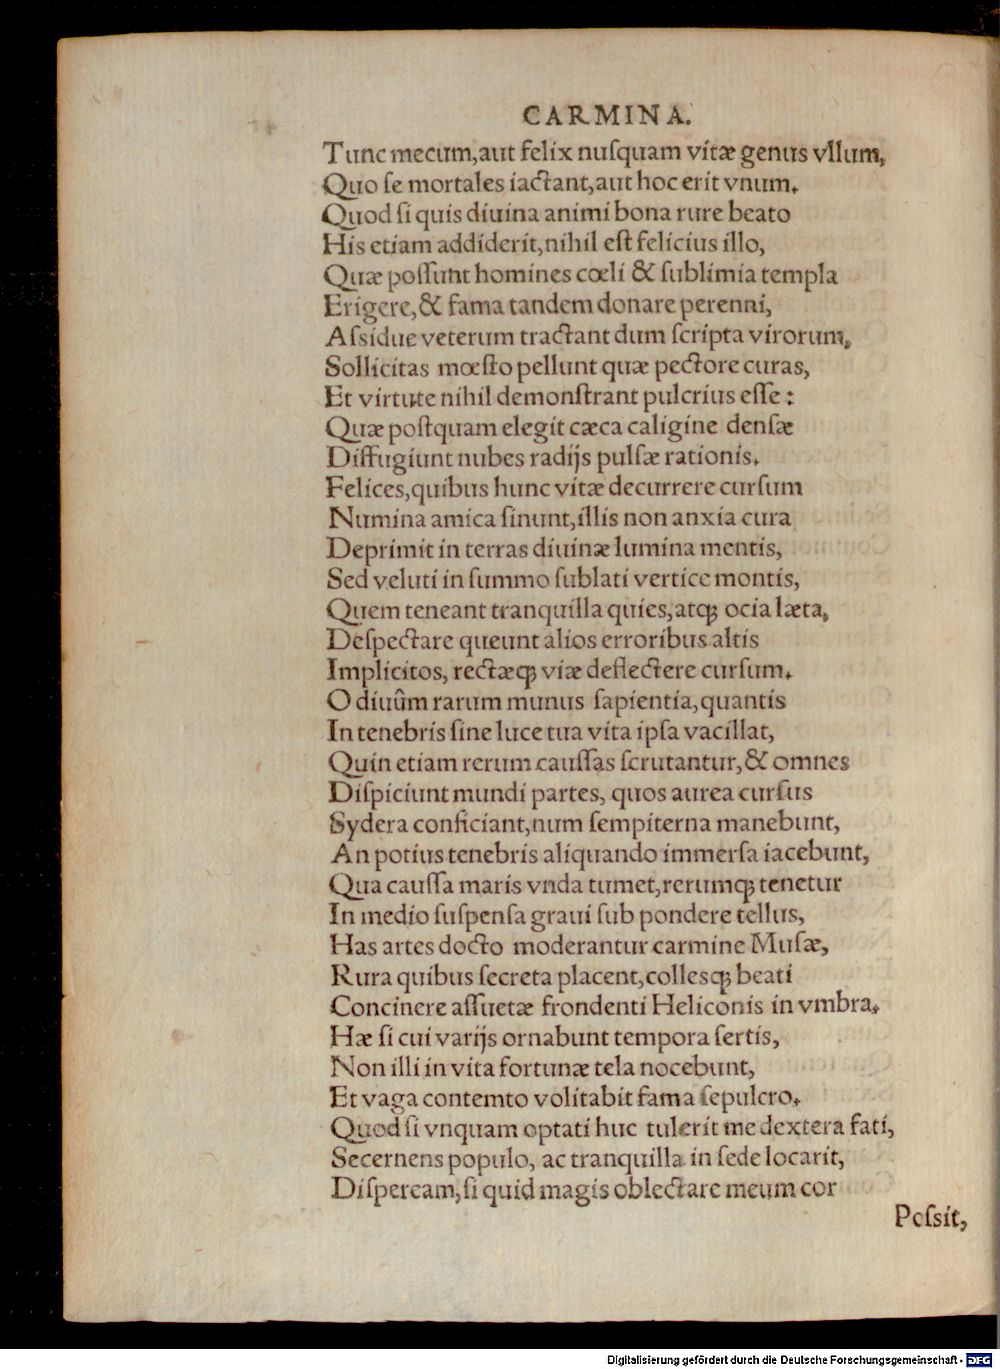 CARMINA.
Tunc mecum,aut felix nuſquam vitæ genus vllum,
Quo ſe mortales iactant,aut hoc erit vnum.
Quod ſi quis diuina animi bona rure beato
His etiam addiderit,nihil eſt felicius illo,
Quæ poſſunt homines cœli & ſublimia templa
Erigere,& fama tandem donare perenni,
Aſsidue veterum tractant dum ſcripta virorum,
Sollicitas mœſto pellunt quæ pectore curas,
Et virtute nihil demonſtrant pulcrius eſſe:
Quæ poſtquam elegit cæca caligine denſæ
Diffugiunt nubes radijs pulſæ rationis.
Felices,quibus hunc vitæ decurrere curſum
Numina amica ſinunt,illis non anxia cura
Deprimit in terras diuinæ lumina mentis,
Sed veluti in ſummo ſublati vertice montis,
Quem teneant tranquilla quies,atqꝫ ocia læta,
Deſpectare queunt alios erroribus altis
Implicitos, rectæqꝫ viæ deflectere curſum.
O diuûm rarum munus ſapientia,quantis
In tenebris ſine luce tua vita ipſa vacillat,
Quin etiam rerum cauſſas ſcrutantur,& omnes
Diſpiciunt mundi partes, quos aurea curſus
Sydera conficiant,num ſempiterna manebunt,
An potius tenebris aliquando immerſa iacebunt,
Qua cauſſa maris vnda tumet,rerumqꝫ tenetur
In medio ſuſpenſa graui ſub pondere tellus,
Has artes docto moderantur carmine Muſæ,
Rura quibus ſecreta placent,colleſqꝫ beati
Concinere aſſuetæ frondenti Heliconis in vmbra.
Hæ ſi cui varijs ornabunt tempora ſertis,
Non illi in vita fortunæ tela nocebunt,
Et vaga contemto volitabit fama ſepulcro.
Quod ſi vnquam optati huc tulerit me dextera fati,
Secernens populo, ac tranquilla in ſede locarit,
Diſpeream,ſi quid magis oblectare meum cor
Poſsit,
Digitalisierung gefördert durch die Deutsche Forschungsgemeinschaft - DFG